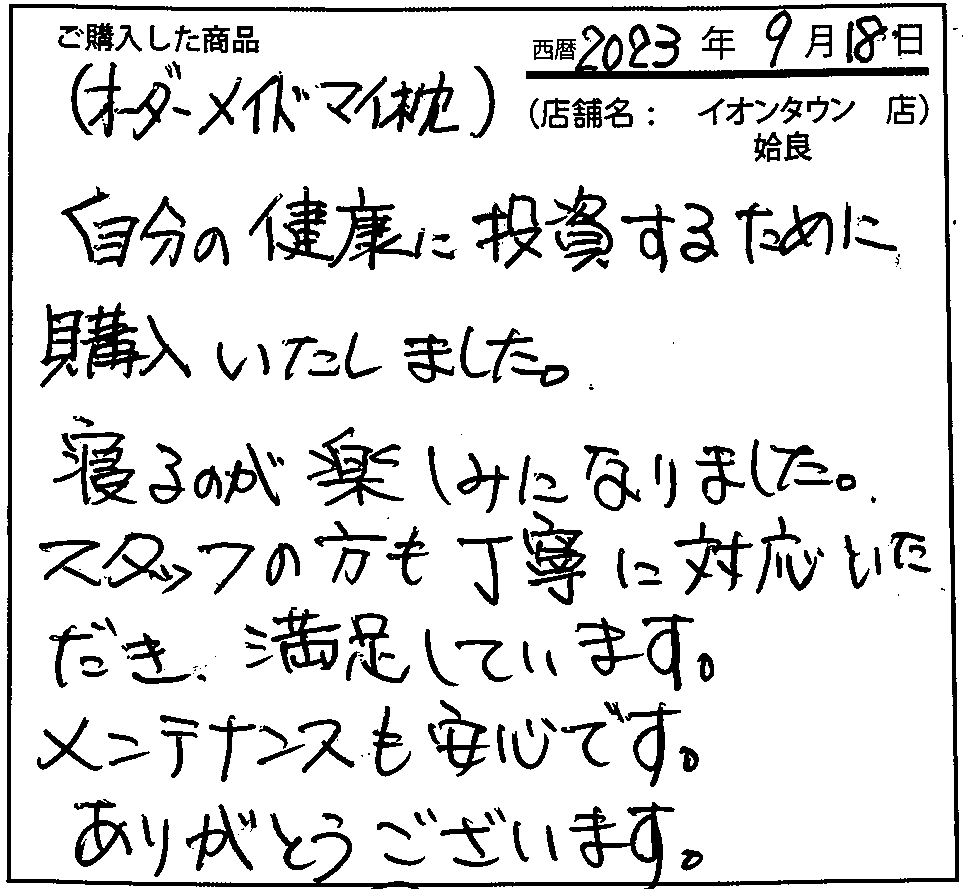 ご購入した商品
西暦2023年9月18日
(オーダーメイドマイ枕)
(店舗名: イオンタウン 店)
姶良
自分の健康に投資するために
購入いたしました。
寝るのが楽しみになりました。
スタッフの方も丁寧に対応いた
だき、満足しています。
メンテナンスも安心です。
ありがとうございます。